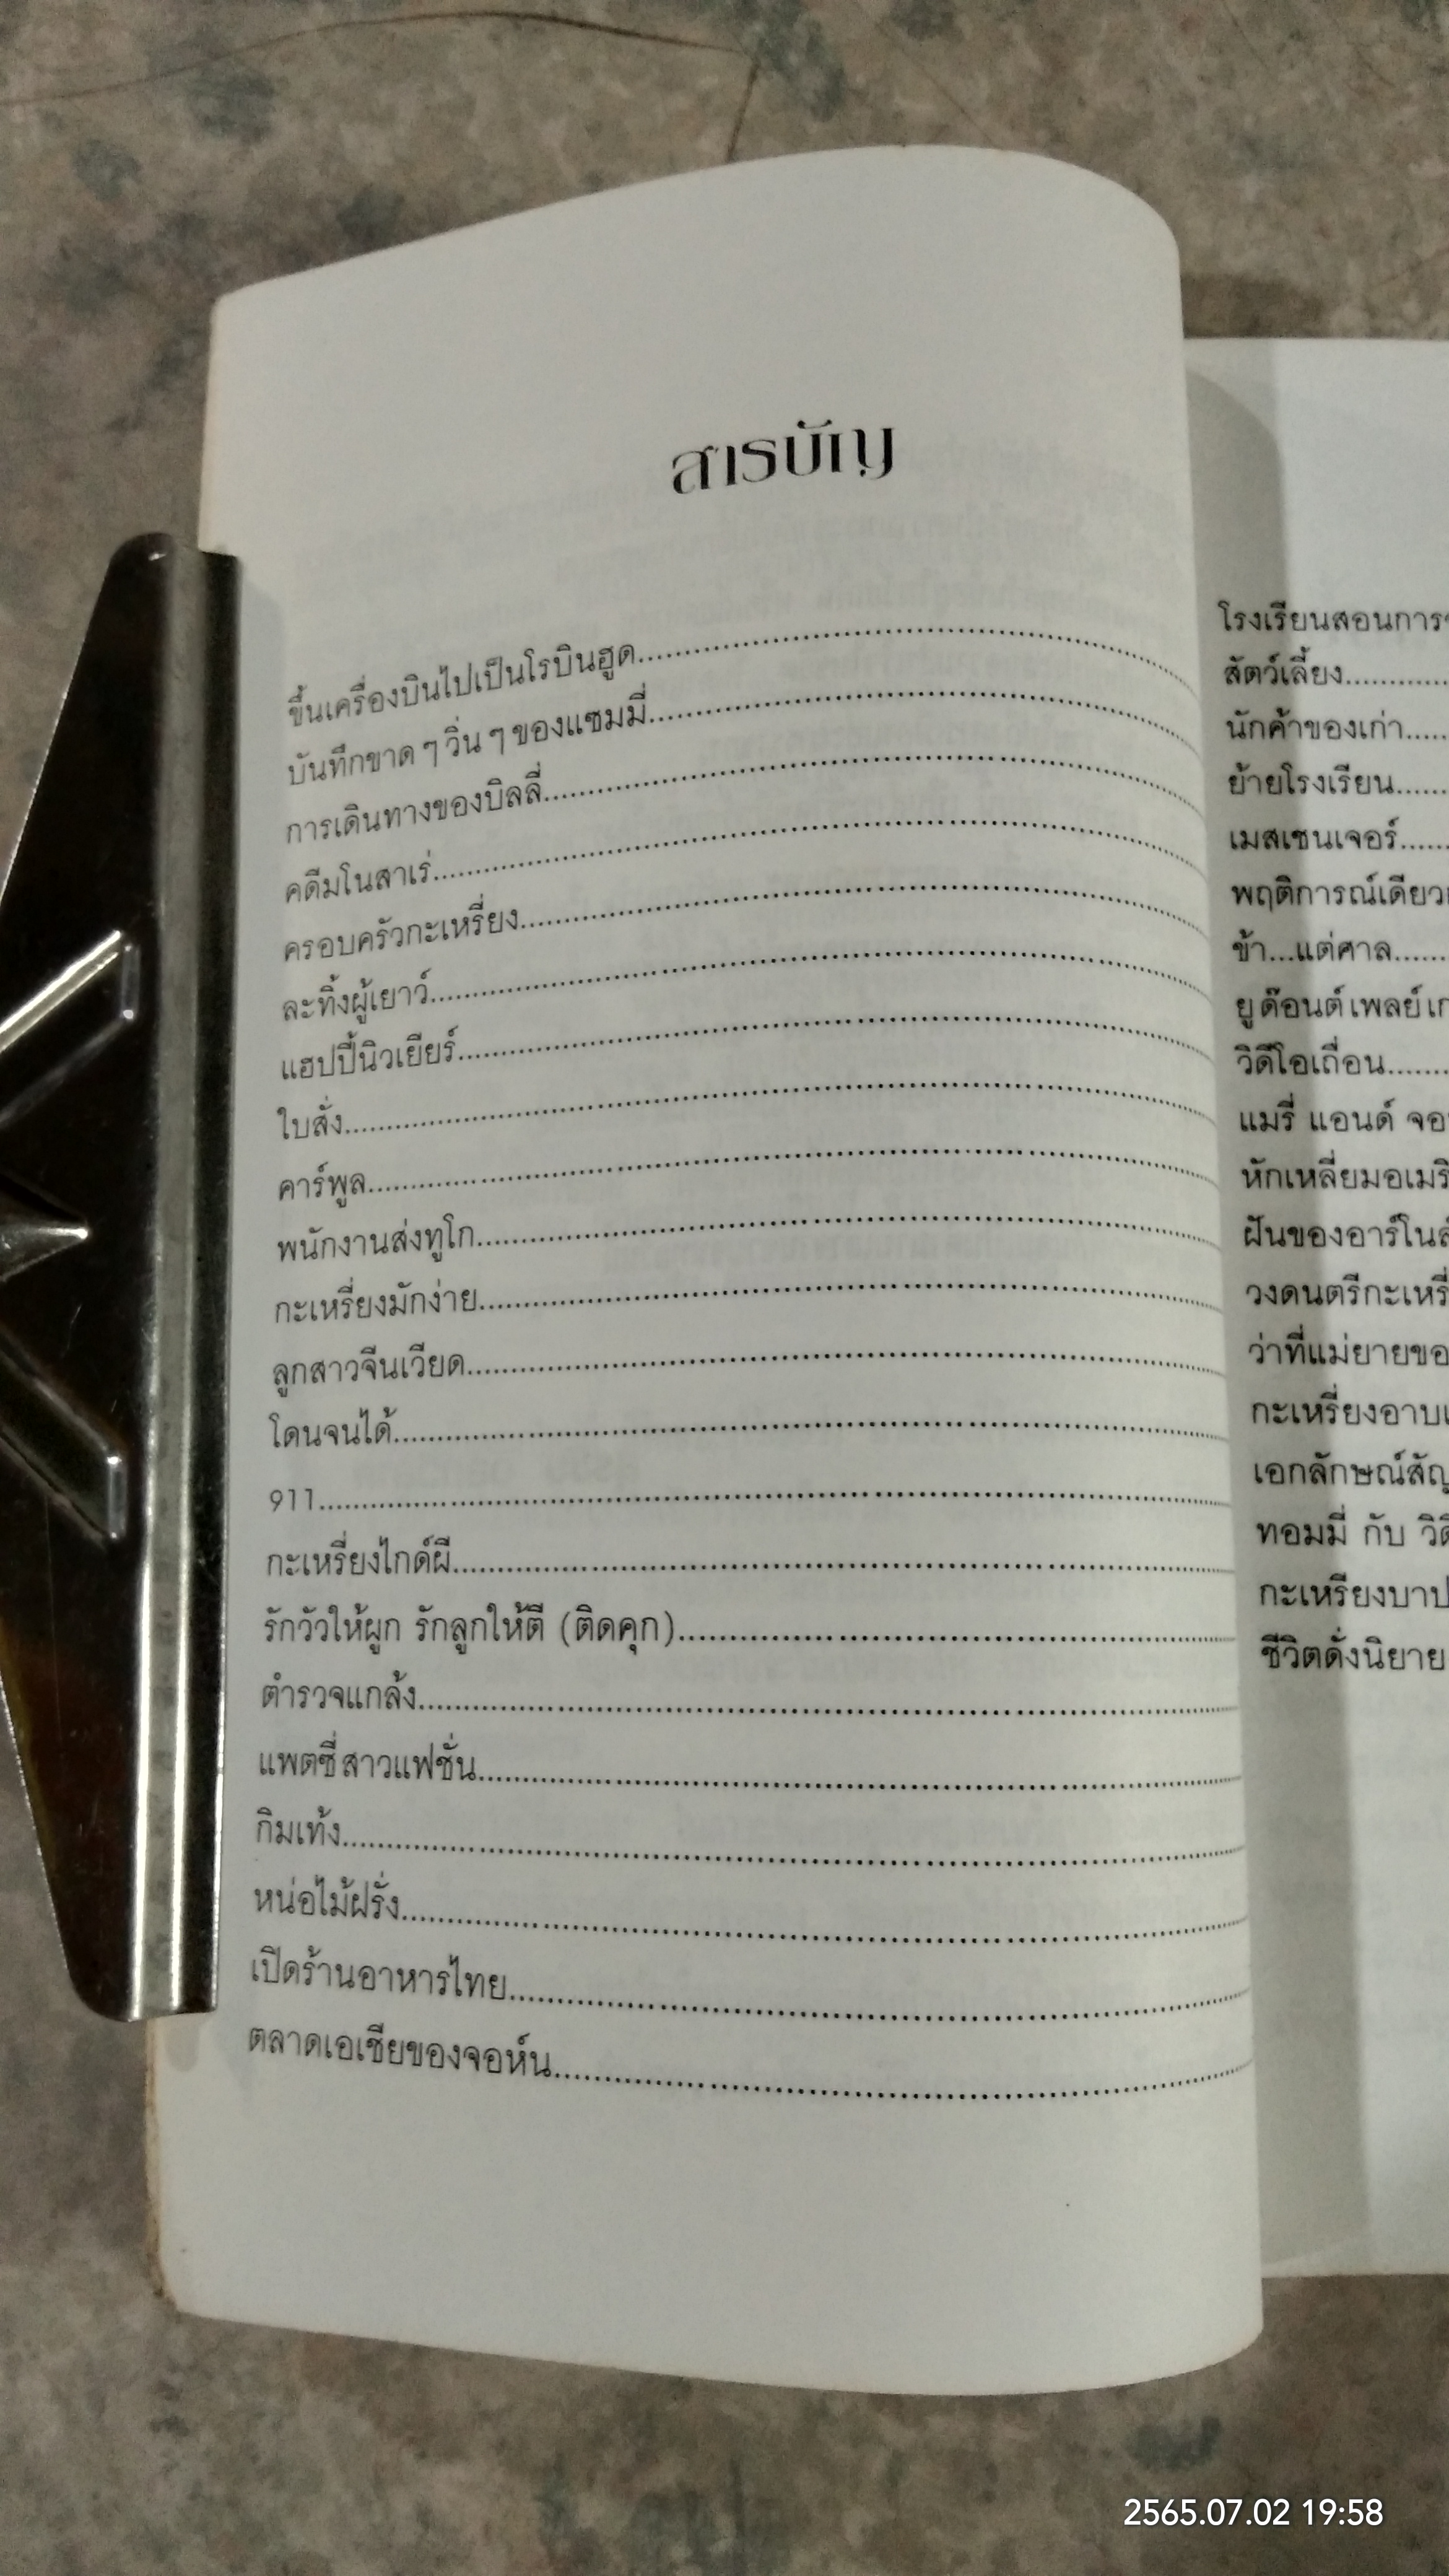 สารบัญ
ขึ้นเครื่องบินไปเป็นโรบินฮูด
บันทึกขาด ๆ วิ่น ๆ ของแซมมี่
การเดินทางของบิลลี่
คดีมโนสาเร่
ครอบครัวกะเหรี่ยง
ละทิ้งผู้เยาว์
แฮปปี้นิวเยียร์
ใบสั่ง
คาร์พูล
พนักงานส่งทูโก
กะเหรี่ยงมักง่าย
ลูกสาวจีนเวียด
โดนจนได้
911
กะเหรี่ยงไกด์ผี
รักวัวให้ผูก รักลูกให้ตี (ติดคุก)
ตำรวจแกล้ง
แพตซี่สาวแฟชั่น
กิมเท้ง
หน่อไม้ฝรั่ง
เปิดร้านอาหารไทย
ตลาดเอเชียของจอห์น
โรงเรียนสอนการ
สัตว์เลี้ยง
นักค้าของเก่า
ย้ายโรงเรียน
เมสเซนเจอร์
พฤติการณ์เดียว
ข้า...แต่ศาล
ยู ด๊อนต์ เพลย์
วิดีโอเถื่อน
แมรี่ แอนด์
หักเหลี่ยม
ฝันของ
วงดนตรี
ว่าที่แม่ยาย
กะเหรี่ยง
เอกลักษณ์
ทอมมี่ กับ
กะเหรี่ยง
ชีวิตดั่งนิยาย
2565.07.02 19:58